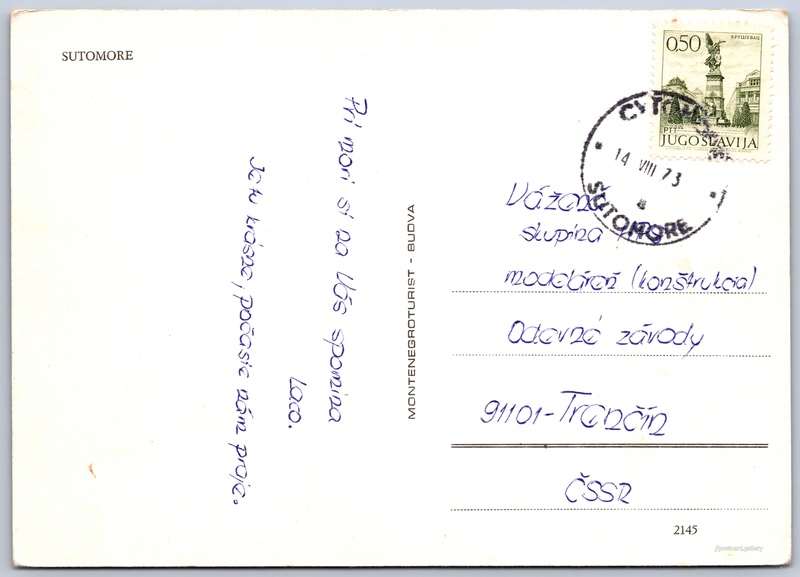 SUTOMORE
Pri mori si na Vás spomína
Laco.
Je tu krásne, počasie nám praje.
MONTENEGROTURIST - BUDVA
0,50
КРУШЕВАЦ
PTT
JUGOSLAVIJA
14 VIII 73
SUTOMORE
Vážená
skupina
modelární (konštrukcia)
Odevné závody
91101-Trenčín
ČSSR
2145
postcard.gallery